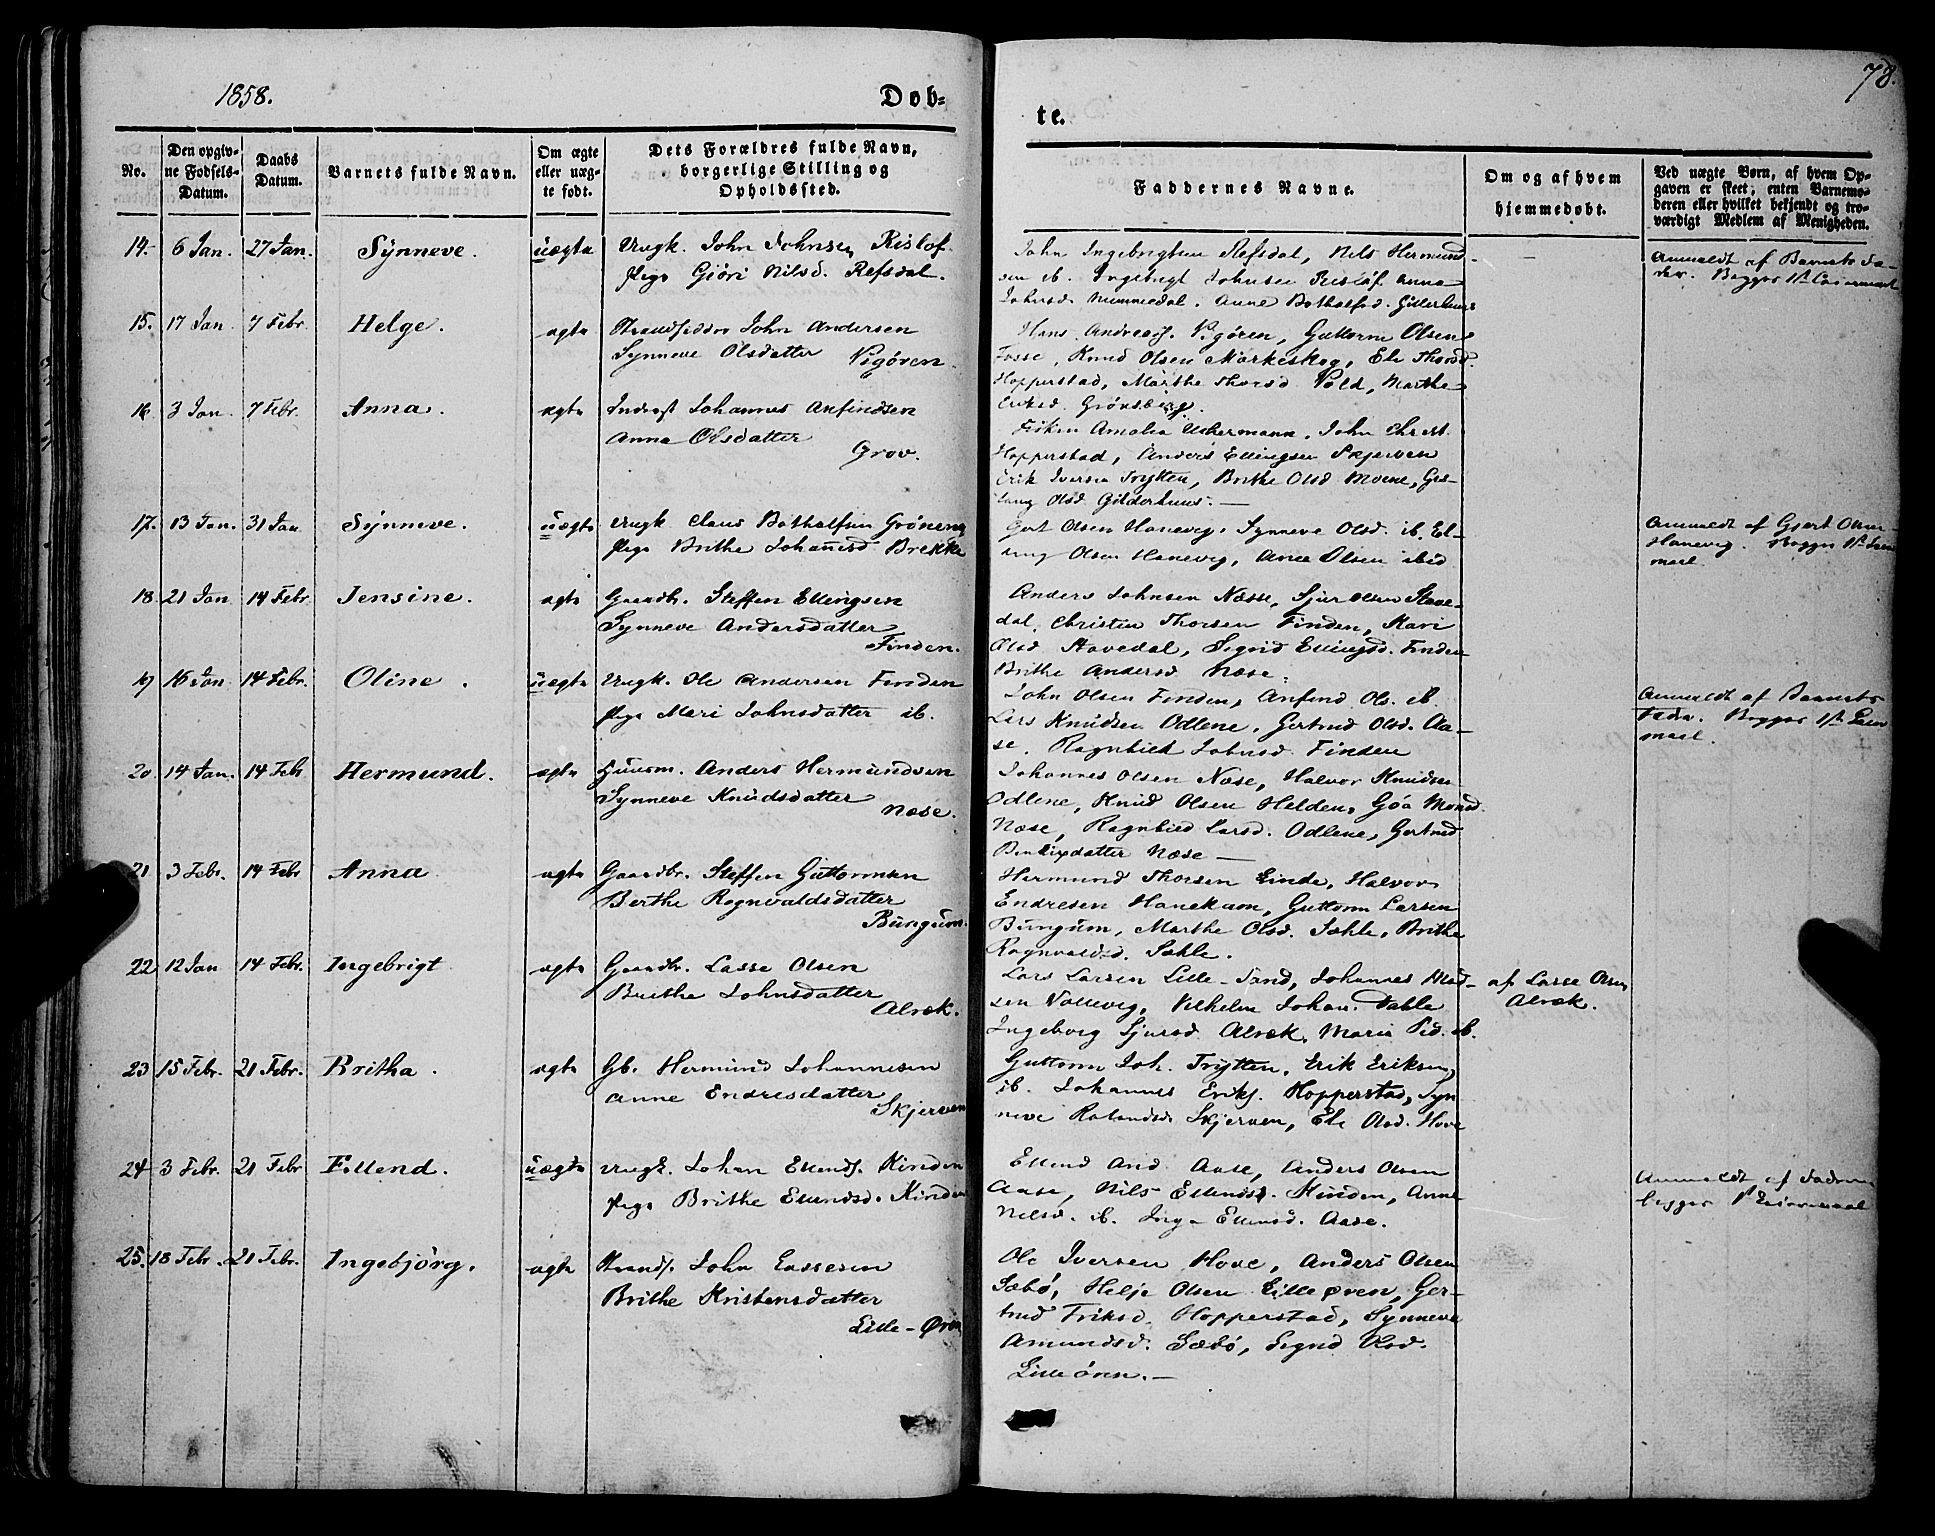 1858.
Døb=
te.
78.
No.
Den opgiv=
ne Fødsels=
Datum.
Daabs
Datum.
Barnets fulde Navn.
Om ægte
eller uæg=
te født.
Dets Forældres fulde Navn,
borgerlige Stilling og
Opholdssted.
Faddernes Navne.
Om og af hvem
hjemmedøbt.
Ved uægte Børn, af hvem Op=
gaven er skeet; enten Barnemo=
deren eller hvilket bekjendt og tro=
værdigt Medlem af Menigheden.
14. 6 Jan. 27 Jan. Synneve. uægte Ungk. John Johnsen Risløf.
Pige Giöri Nilsd. Refsdal.
John Ingebrigtsen Refsdal, Nils Hermund-
sen ib. Ingebrigt Johnsen Risløf Anna
Johnsd. Nummedal, Anne Bothalfsd. Gilderhuus
Anmeldt af Barnets Fa-
der. Begges 1ste Leiermaal
15. 17 Jan. 7 Febr. Helge. ægte Strandsidder John Andersen
Synneve Olsdatter Vigören.
Hans Andreas. Vigören, Guttorm Olsen
Fosse, Knud Olsen Markeskog, Eli Thorsd.
Hopperstad, Marthe Thorsd Vold, Marthe
Eriksd. Grönsberg.
16. 3 Jan. 7 Febr. Anna. ægte Inderst Johannes Anfindsen
Anna Olsdatter
Grov.
Fröken Amalia Uchermann, John Christ.
Hopperstad, Anders Ellingsen Skjerven
Erik Iversen Trytten, Brithe Olsd Moene, Ges-
laug Olsd. Gilderhuus. —
17. 13 Jan. 31 Jan Synneve. uægte Ungk. Claus Bothalfsen Gröneng
Pige Brithe Johannesd Brekke
Gert Olsen Hanevig, Synneve Olsd. ib. El-
ling Olsen Hanevig, Anna Olsen ibid
Anmeldt af Gjert Olsen
Hanevig. Begges 1ste Leier
maal.
18. 21 Jan 14 Febr. Jensine. ægte Gaardbr. Steffen Ellingsen
Synneve Andersdatter
Finden.
Anders Johnsen Næsse, Sjur Olsen Stave-
dal, Christen Thorsen Finden, Kari
Olsd Stavedal, Sigrid Ellingsd. Finden
Brithe Andersd Næse.
19 16 Jan 14 Febr. Oline. uægte Ungk. Ole Andersen Finden
Pige Mari Johnsdatter ib.
John Olsen Finden, Anfind Ols. ib.
Lars Knudsen Odlene, Gertrud Olsd. Aa-
se, Ragnhild Johnsd. Finden
Anmeldt af Barnets
Fader. Begges 1ste Leier
maal.
20. 14 Jan. 14 Febr Hermund. ægte Huusm. Anders Hermundsen
Synneve Knudsdatter
Næse.
Johannes Olsen Næse, Halvor Knudsen
Odlene, Knud Olsen Helden, Göa Monsd.
Næse, Ragnhild Larsd. Odlene, Gertrud
Bendixdatter Næse —
21 3 Febr. 14 Febr Anna ægte Gaardbr. Steffen Guttormsen
Berthe Rognvaldsdatter
Bungum.
Hermund Thorsen Linde, Halvor
Endresen Hanekam, Guttorm Larsen
Bungum, Marthe Olsd. Sæhle, Brithe
Rognvaldsd. Sæhle.
22 12 Jan 14 Febr. Ingebrigt ægte Gaardbr. Lasse Olsen
Brithe Johnsdatter
Alrek.
Lars Larsen Lille-Sand, Johannes Mad-
sen Vollevig, Vilhelm Johan. Dahle
Ingeborg Sjursd Alræk, Marie Ped. ib.
af Lasse Olsen
Alræk.
23 15 Febr. 21 Febr. Britha. ægte Gb. Hermund Johannesen
Anne Endresdatter
Skjerven
Guttorm Joh. Trytten, Erik Eriksen
ib. Johannes Eriks. Hopperstad, Syn
neve Rolandsd. Skjerven, Eli Olsd. Hove
24 3 Febr. 21 Febr Ellend. uægte Ungk. Johan Ellends. Kinden
Pige Brithe Ellendsd. Kinden
Ellend And. Aase, Anders Olsen
Aase, Nils Ellends. Kinden, Anne
Nilsd. ib. Inga Ellendsd. Aase.
Anmeldt af Faderen
begges 1ste Leiermaal
25. 18 Febr. 21 Febr. Ingebjörg. ægte Strands. John Lassesen
Brithe Kristensdatter
Lille-Ören
Ole Iversen Hove, Anders Olsen
Sæbö, Helje Olsen Lilleören, Ger-
trud Eriksd. Hopperstad, Synneve
Amundsd. Sæbö, Sigrid Olsd.
Lilleören. —